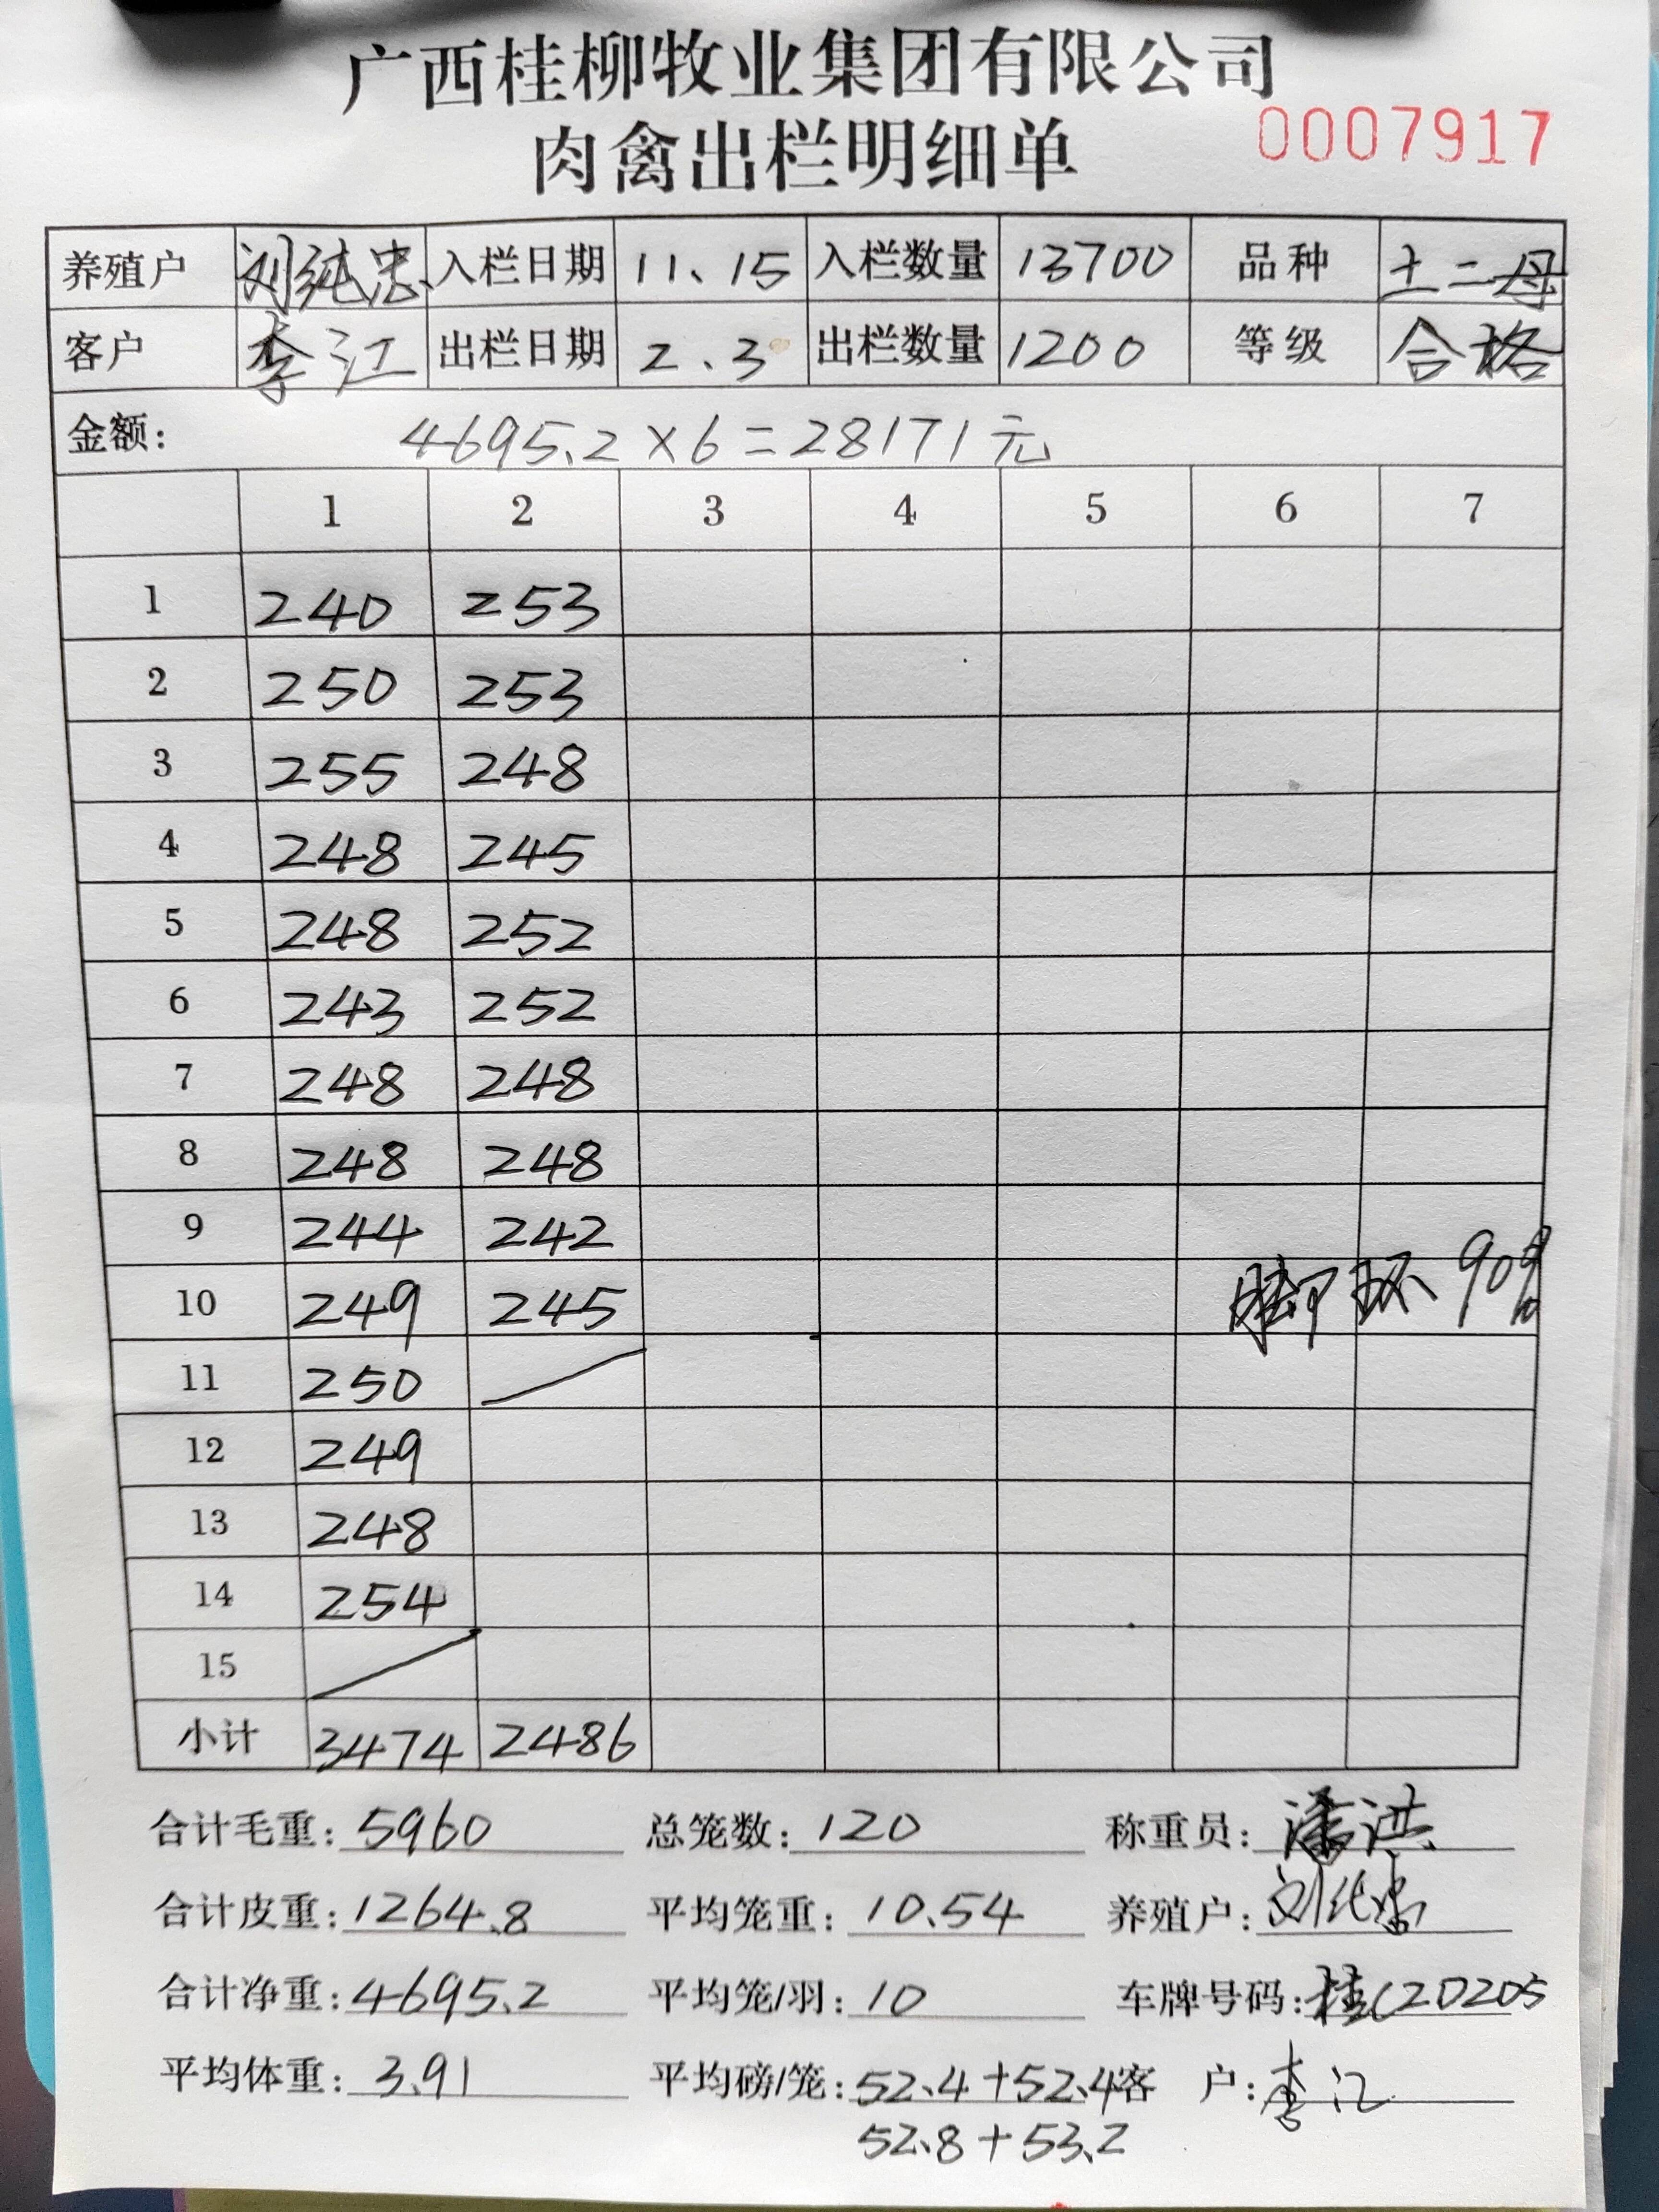 广西桂柳牧业集团有限公司
肉禽出栏明细单 0007917
养殖户 刘纯忠 入栏日期 11、15 入栏数量 13700 品种 土二母
客户 李江 出栏日期 2.3 出栏数量 1200 等级 合格
金额: 4695.2×6=28171元
1 2 3 4 5 6 7
1 240 253
2 250 253
3 255 248
4 248 245
5 248 252
6 243 252
7 248 248
8 248 248
9 244 242
10 249 245 脚环90%
11 250
12 249
13 248
14 254
15
小计 3474 2486
合计毛重: 5960 总笼数: 120 称重员: 潘洪
合计皮重: 1264.8 平均笼重: 10.54 养殖户: 刘纯忠
合计净重: 4695.2 平均笼/羽: 10 车牌号码: 桂C20205
平均体重: 3.91 平均磅/笼: 52.4+52.4 客户: 李江
52.8+53.2